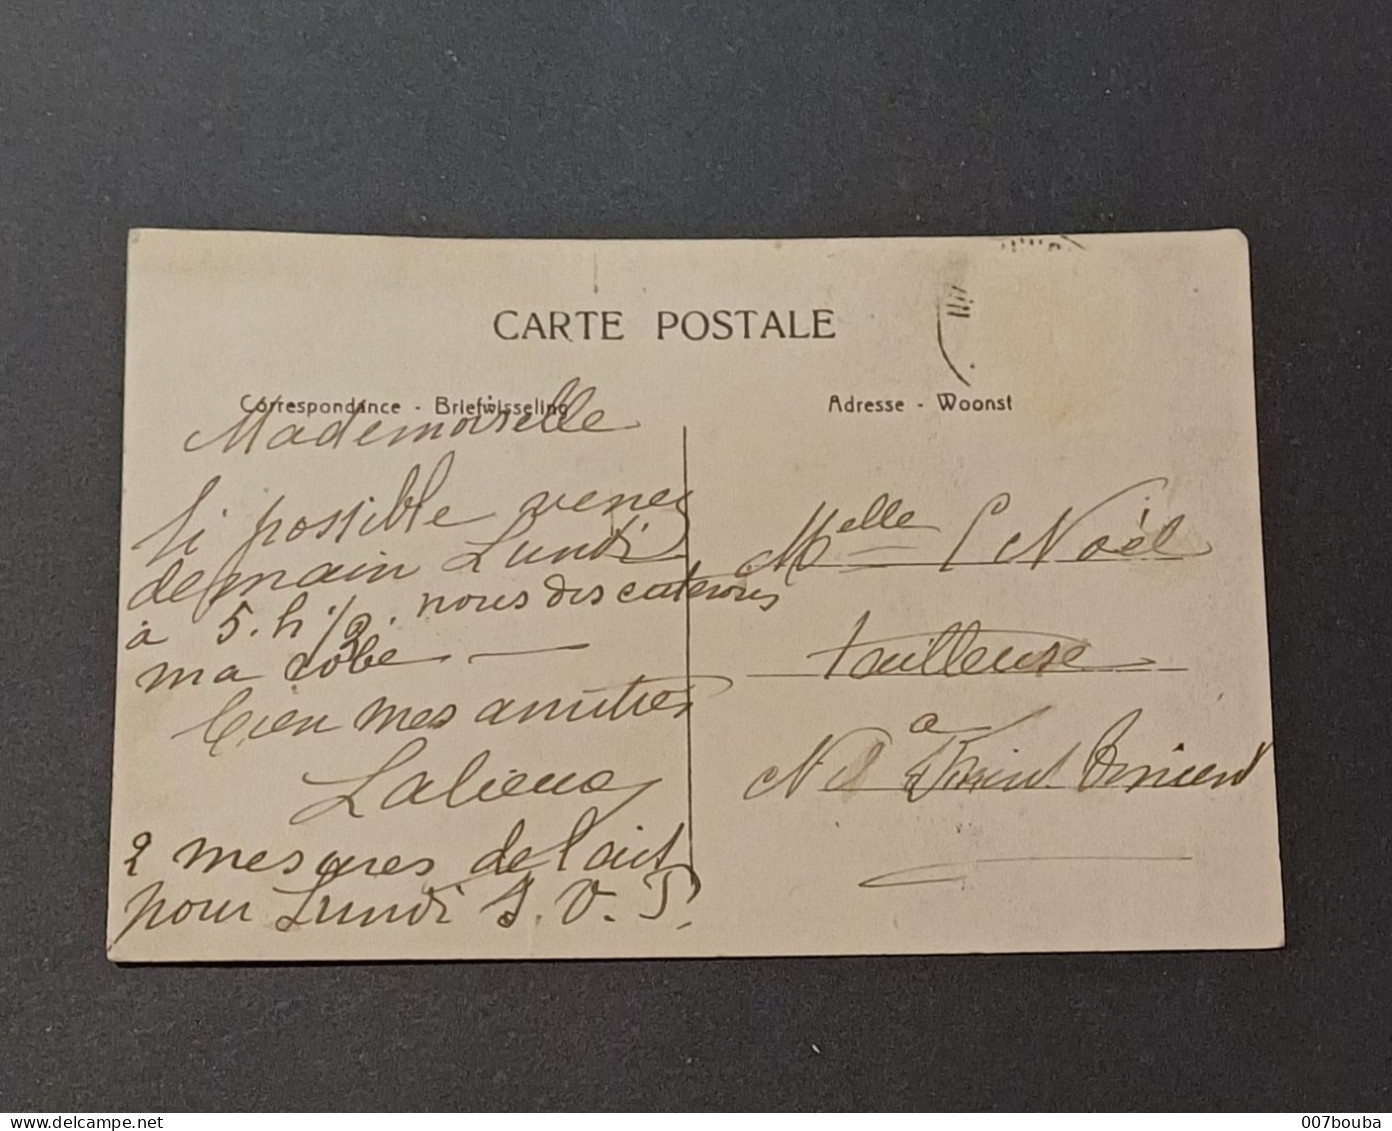 CARTE POSTALE
Correspondance - Briefwisseling
Adresse - Woonst
Mademoiselle
Si possible venez
demain Lundi
à 5. h 1/2. nous discuterons
ma robe —
bien mes amitiés
2 mesures de lait
pour Lundi S. V. P.
Melle Noël
tailleuse
à
www.delcampe.net
007bouba